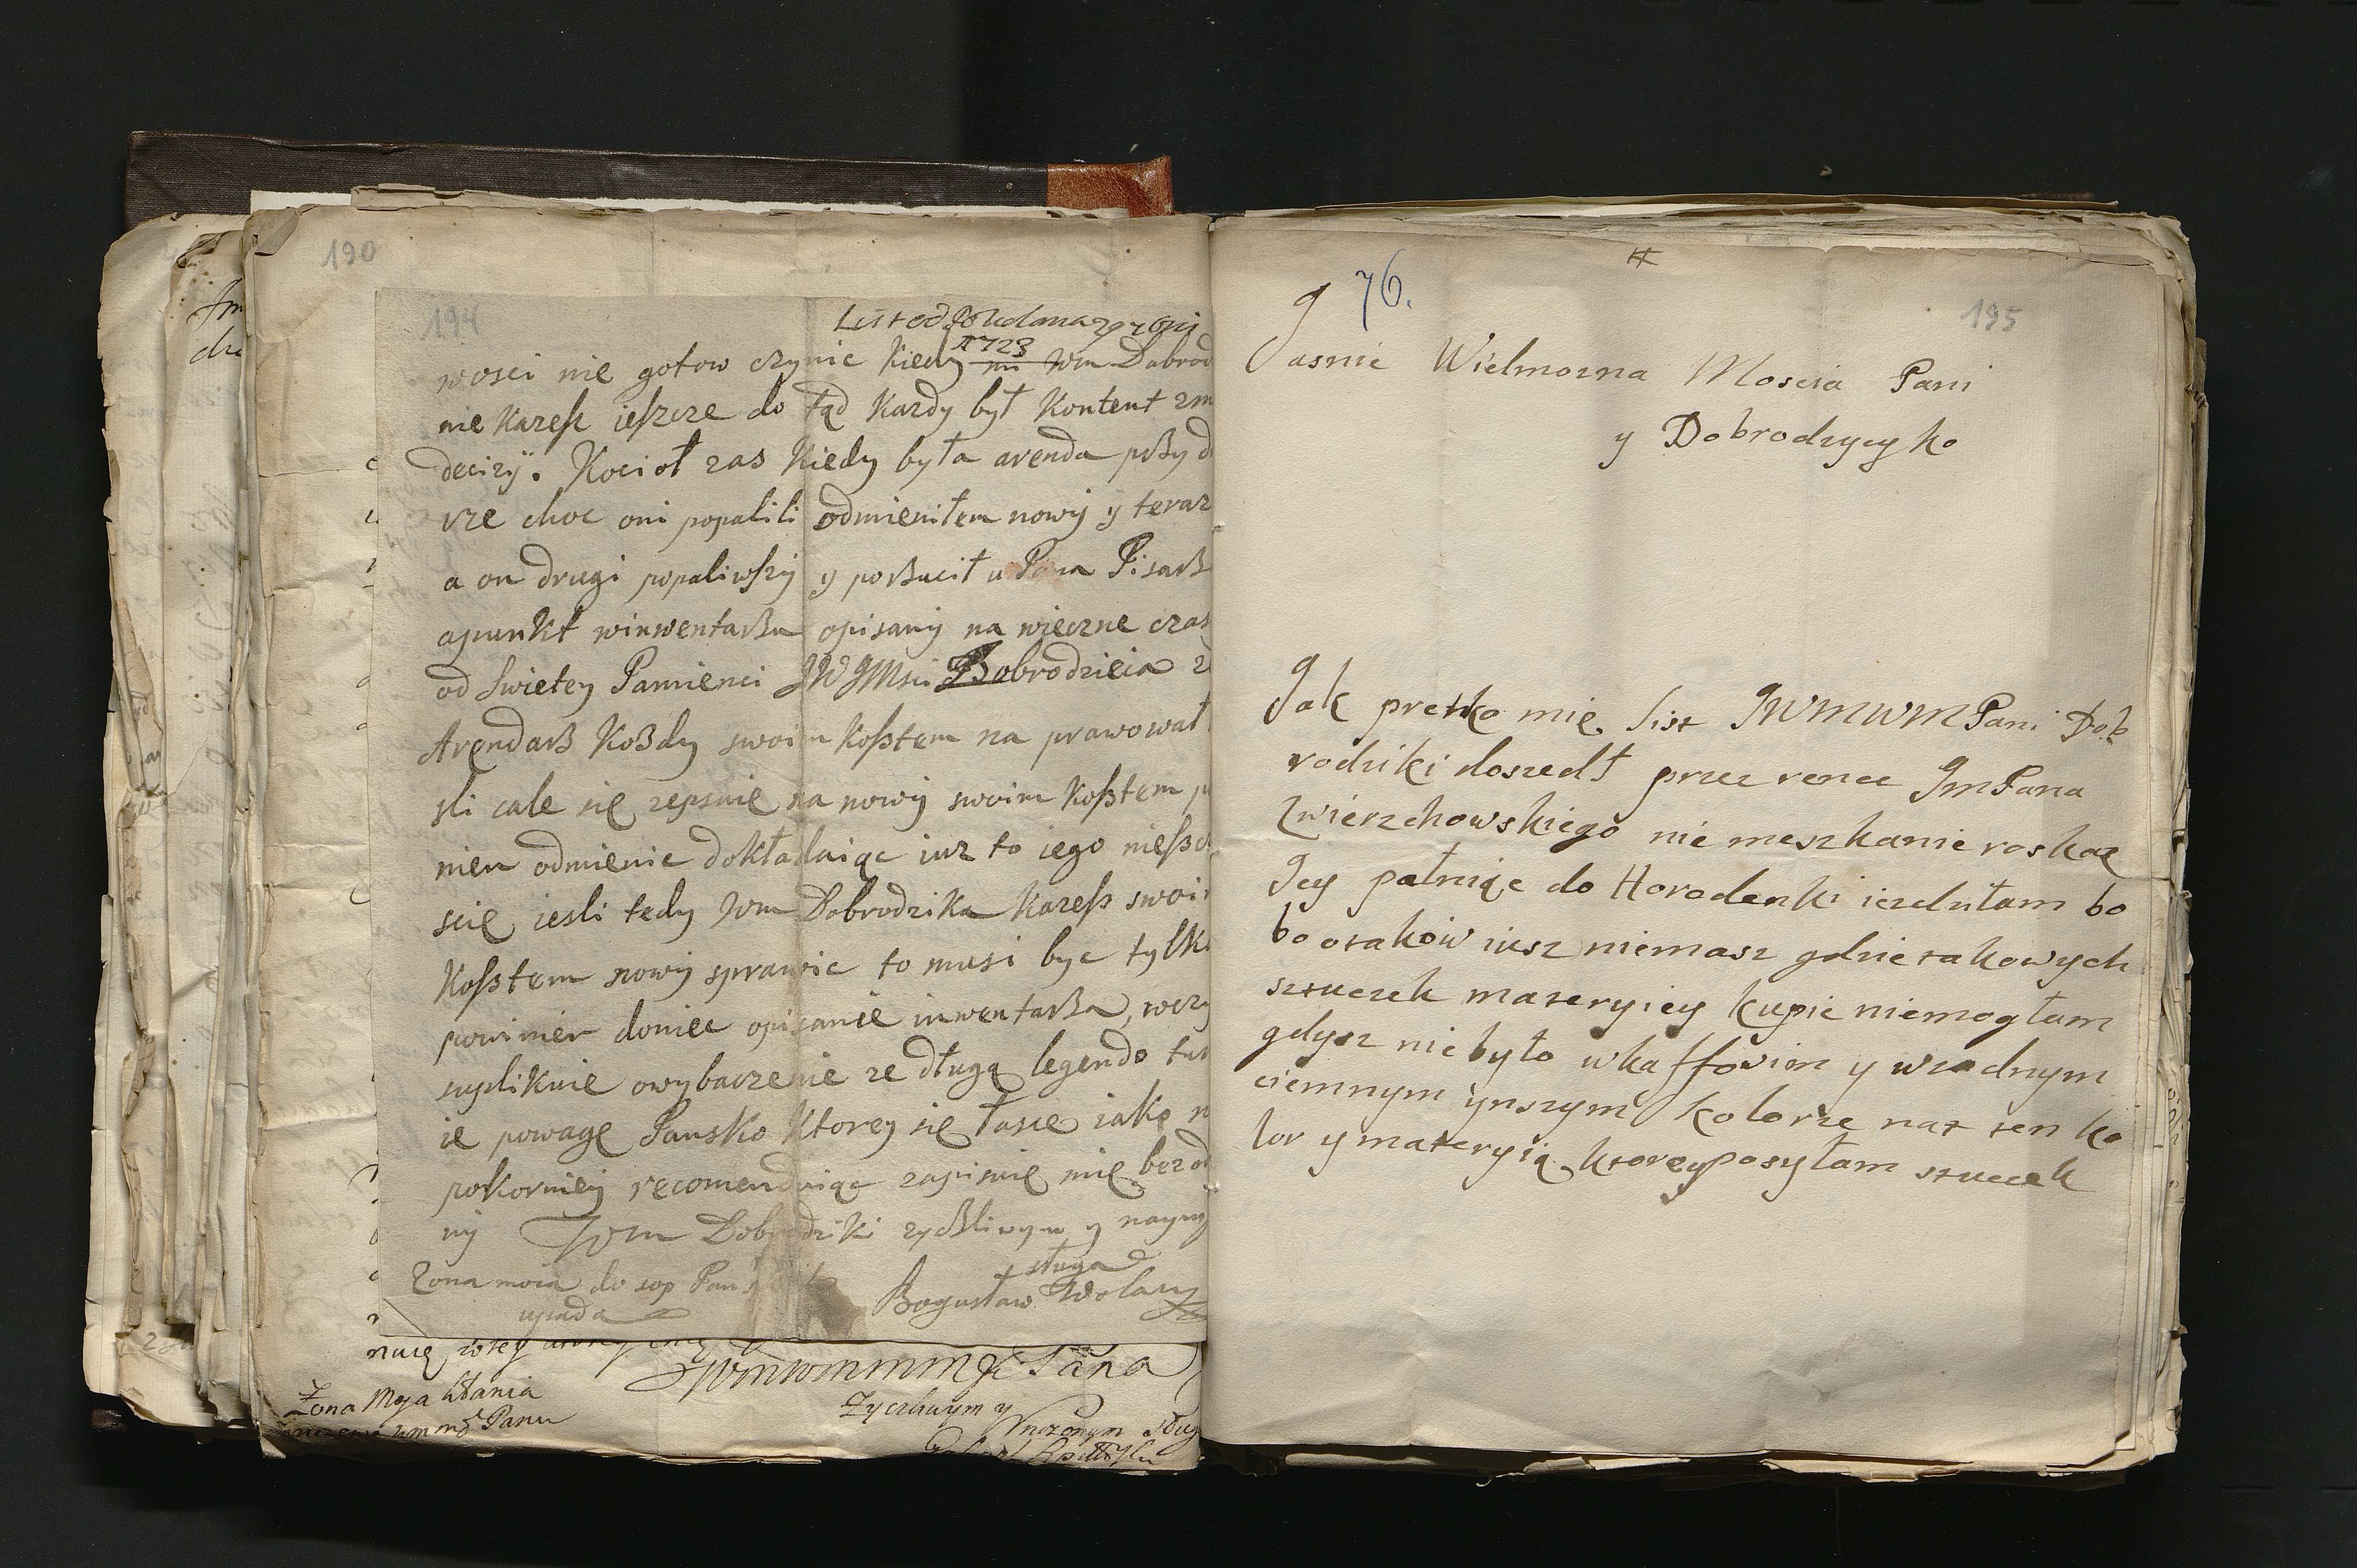 190
194
List od
1723
wosci nie gotow czynic kiedy Wm Dobrod
nie Kazesz ieszcze do tąd Kazdy był Kontent zm
decizÿ. Kocioł zas Kiedy była arenda
rze choc oni popalili odmieniłem nowÿ y teraz
a on drugi popaliwszÿ y porßucił u Pana Pisarß
apunkt winwentarßu opisanÿ na wieczne czas
od Swietey Pamienci JWJMsci Dobrodzieia z
Arendarß Koßdy swoim Kosßtem na prawował
sli cale się zepsuie na nowÿ swoim Kosßtem p
nien odmienic dokładaiąc iuz to iego
scię iesli tedy Wm Dobrodzika Kazesz swoi
Kosßtem nowÿ sprawic to musi byc tylk
powinien doniec opisanie inwentarßa,
suplikuie owybaczenie ze długą legendo
ie powagę Pansko Ktorey się łasce iako n
pokorniey recomenduiąc zapisuię mię bez od
nÿ Wm Dobrodziki zycßliwym y nayny
sługa
Zona moia do sop Pans
upada
Bogusław Wolan
JWmWmmm Pana
Zona Moja kłania
Zyczliwym y
wmmd Panu
Unizonym Sług
76.
195
Jasnie Wielmozna Moscia Pani
y Dobrodzycyko
Jak pretko mię list JWMWM Pani Dob
rodziki doszedł przez rence JmPana
Zwierzchowskiego nie meszkanie roskaz
Jey pałniąc do Horodenki iezdziłam bo
bo otakow iusz niemasz gdzie takowych
sztuczek materyiey kupic niemogłam
gdysz niebyło wkaffowim y wzadnym
ciemnym ynszym kolorze nat ten ko
lor y materyią ktorey posyłam sztucek